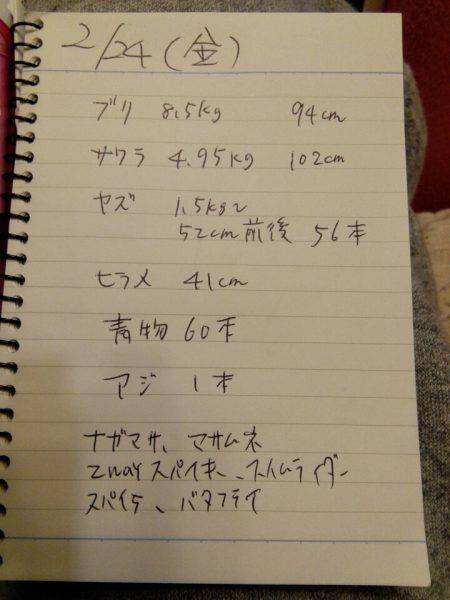 2/24(金)
ブリ 8.5kg 94cm
サワラ 4.95kg 102cm
ヤズ 1.5kg〜
52cm前後 56本
ヒラメ 41cm
青物 60本
アジ 1本
ナガマサ、マサムネ
2wayスパイキー、スイムライダー
スパイク、バタフライ